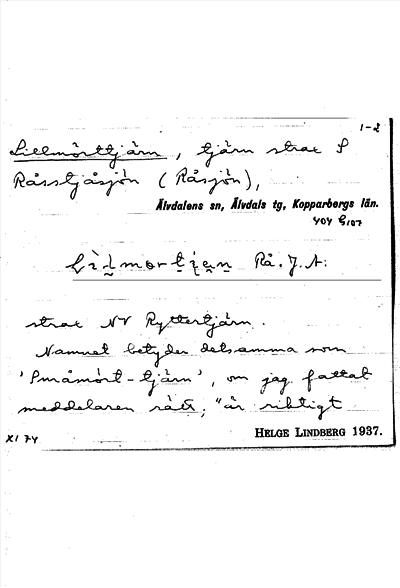 1-2
Lillmörttjärn, tjärn strax S
Råsstjåsjön (Råsjön),
Älvdalens sn, Älvdals tg, Kopparbergs län.
Rå. J. A:
strax NV Ryttertjärn.
Namnet betyder detsamma som
'Småmört-tjärn', om jag fattat
meddelaren rätt; "är riktigt
XI 74
HELGE LINDBERG 1937.